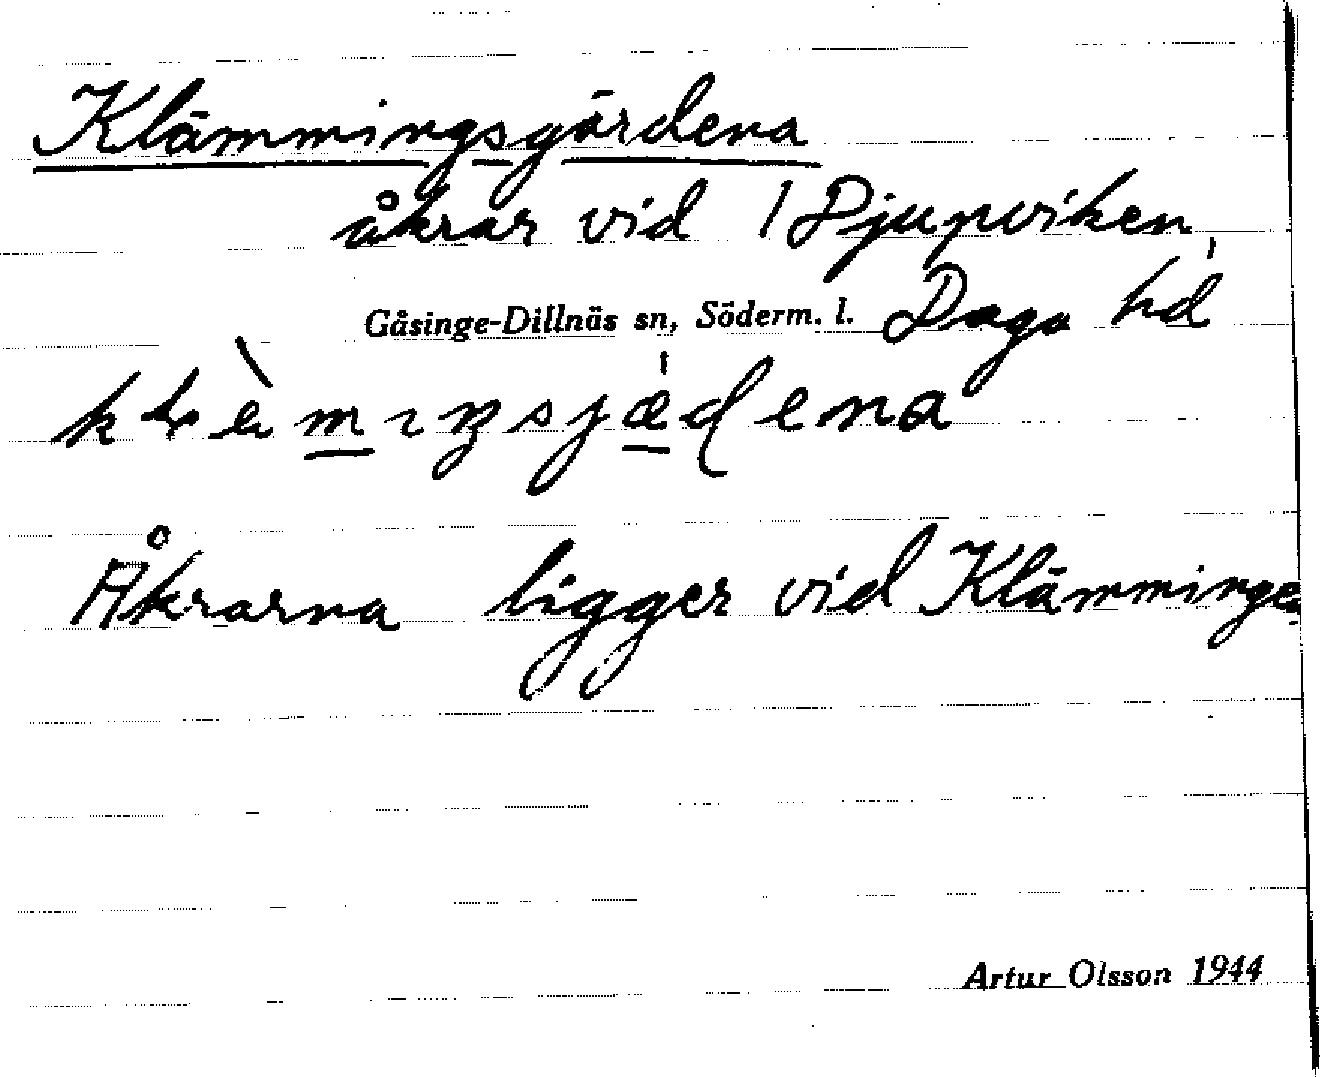 Klämmingsgärdena
åkrar vid 1 Djupviken,
Gåsinge-Dillnäs sn, Söderm. l. Daga hd
Åkrarna ligger vid Klämmingen
Artur Olsson 1944